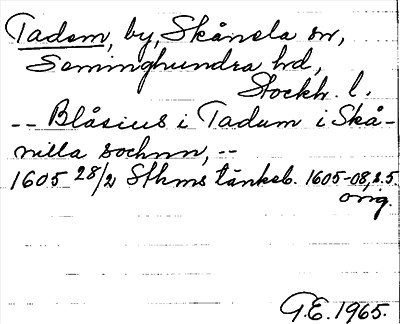 Tadem, by, Skånela sn,
Seminghundra hd,
Stockh. l.
-- Blåsius i Tadum i Skå-
nilla sochnn, --
1605 28/2 Sthms tänkeb. 1605-08, s. 5.
orig.
G.E. 1965.